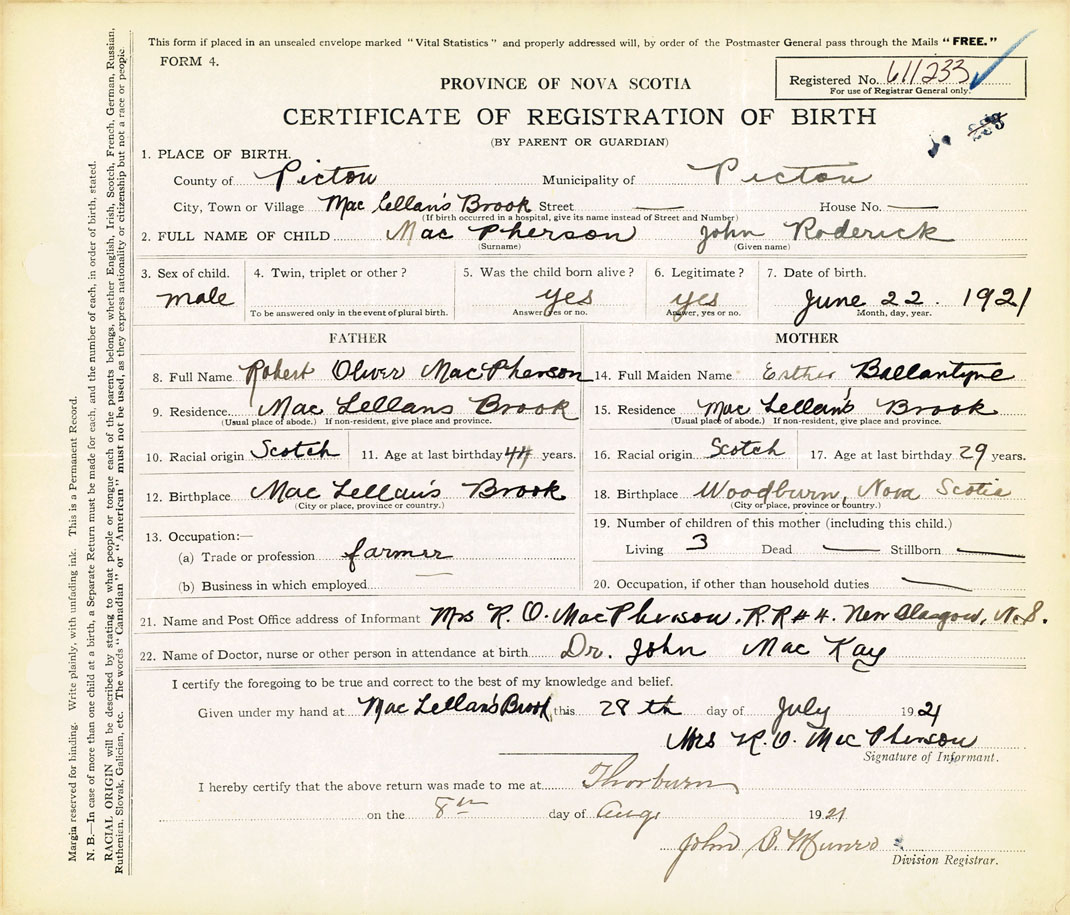 This form if placed in an unsealed envelope marked "Vital Statistics" and properly addressed will, by order of the Postmaster General pass through the Mails "FREE."
FORM 4.
Registered No. 611233
For use of Registrar General only.
PROVINCE OF NOVA SCOTIA
CERTIFICATE OF REGISTRATION OF BIRTH
(BY PARENT OR GUARDIAN)
1. PLACE OF BIRTH.
County of Pictou Municipality of Pictou
City, Town or Village Mac Lellan's Brook Street — House No. —
(If birth occurred in a hospital, give its name instead of Street and Number)
2. FULL NAME OF CHILD Mac Pherson John Roderick
(Surname) (Given name)
3. Sex of child. 4. Twin, triplet or other? 5. Was the child born alive? 6. Legitimate? 7. Date of birth.
male yes yes June 22. 1921
To be answered only in the event of plural birth. Answer yes or no. Answer, yes or no. Month, day, year.
FATHER MOTHER
8. Full Name Robert Oliver MacPherson 14. Full Maiden Name Esther Ballantyne
9. Residence Mac Lellans Brook 15. Residence Mac Lellan's Brook
(Usual place of abode.) If non-resident, give place and province. (Usual place of abode.) If non-resident, give place and province.
10. Racial origin Scotch 11. Age at last birthday 44 years. 16. Racial origin Scotch 17. Age at last birthday 29 years.
12. Birthplace Mac Lellan's Brook 18. Birthplace Woodburn, Nova Scotia
(City or place, province or country.) (City or place, province or country.)
13. Occupation:— 19. Number of children of this mother (including this child.)
(a) Trade or profession farmer Living 3 Dead — Stillborn —
(b) Business in which employed — 20. Occupation, if other than household duties —
21. Name and Post Office address of Informant Mrs R. O. MacPherson, R.R #4. New Glasgow, N.S.
22. Name of Doctor, nurse or other person in attendance at birth Dr. John Mac Kay
I certify the foregoing to be true and correct to the best of my knowledge and belief.
Given under my hand at Mac Lellan's Brook this 28th day of July 1921
Mrs R. O. MacPherson
Signature of Informant.
I hereby certify that the above return was made to me at Thorburn
on the 8th day of Aug. 1921
John B. Munro
Division Registrar.
Margin reserved for binding. Write plainly, with unfading ink. This is a Permanent Record.
N. B.—In case of more than one child at a birth, a Separate Return must be made for each, and the number of each, in order of birth, stated.
RACIAL ORIGIN will be described by stating to what people or tongue each of the parents belongs, whether English, Irish, Scotch, French, German, Russian,
Ruthenian, Slovak, Galician, etc. The words "Canadian" or "American" must not be used, as they express nationality or citizenship but not a race or people.